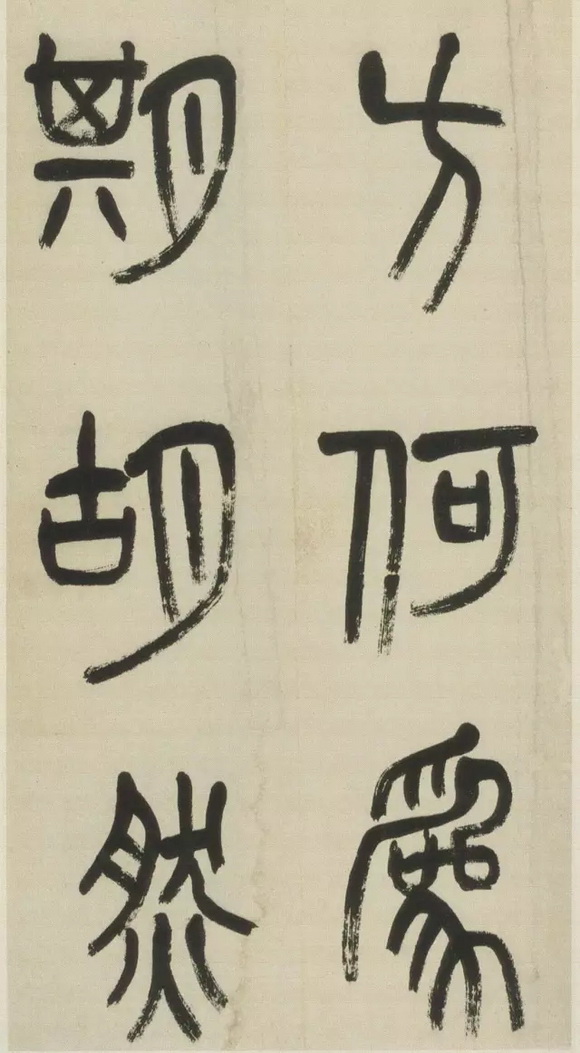 方何爲
期胡然